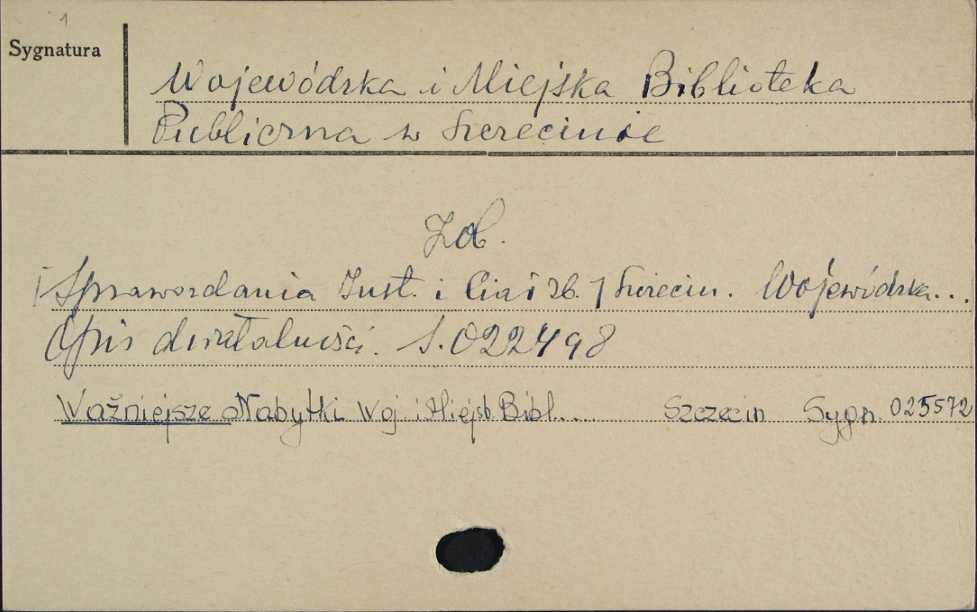 1
Sygnatura
Wojewódzka i Miejska Biblioteka
Publiczna w Szczecinie
Zob.
[Sprawozdania Inst. i Ciał zb.] Szczecin. Wojewódzka...
Opis działalności. S. 022498
Ważniejsze Nabytki Woj. i Miejsk. Bibl.... Szczecin Sygn. 025572